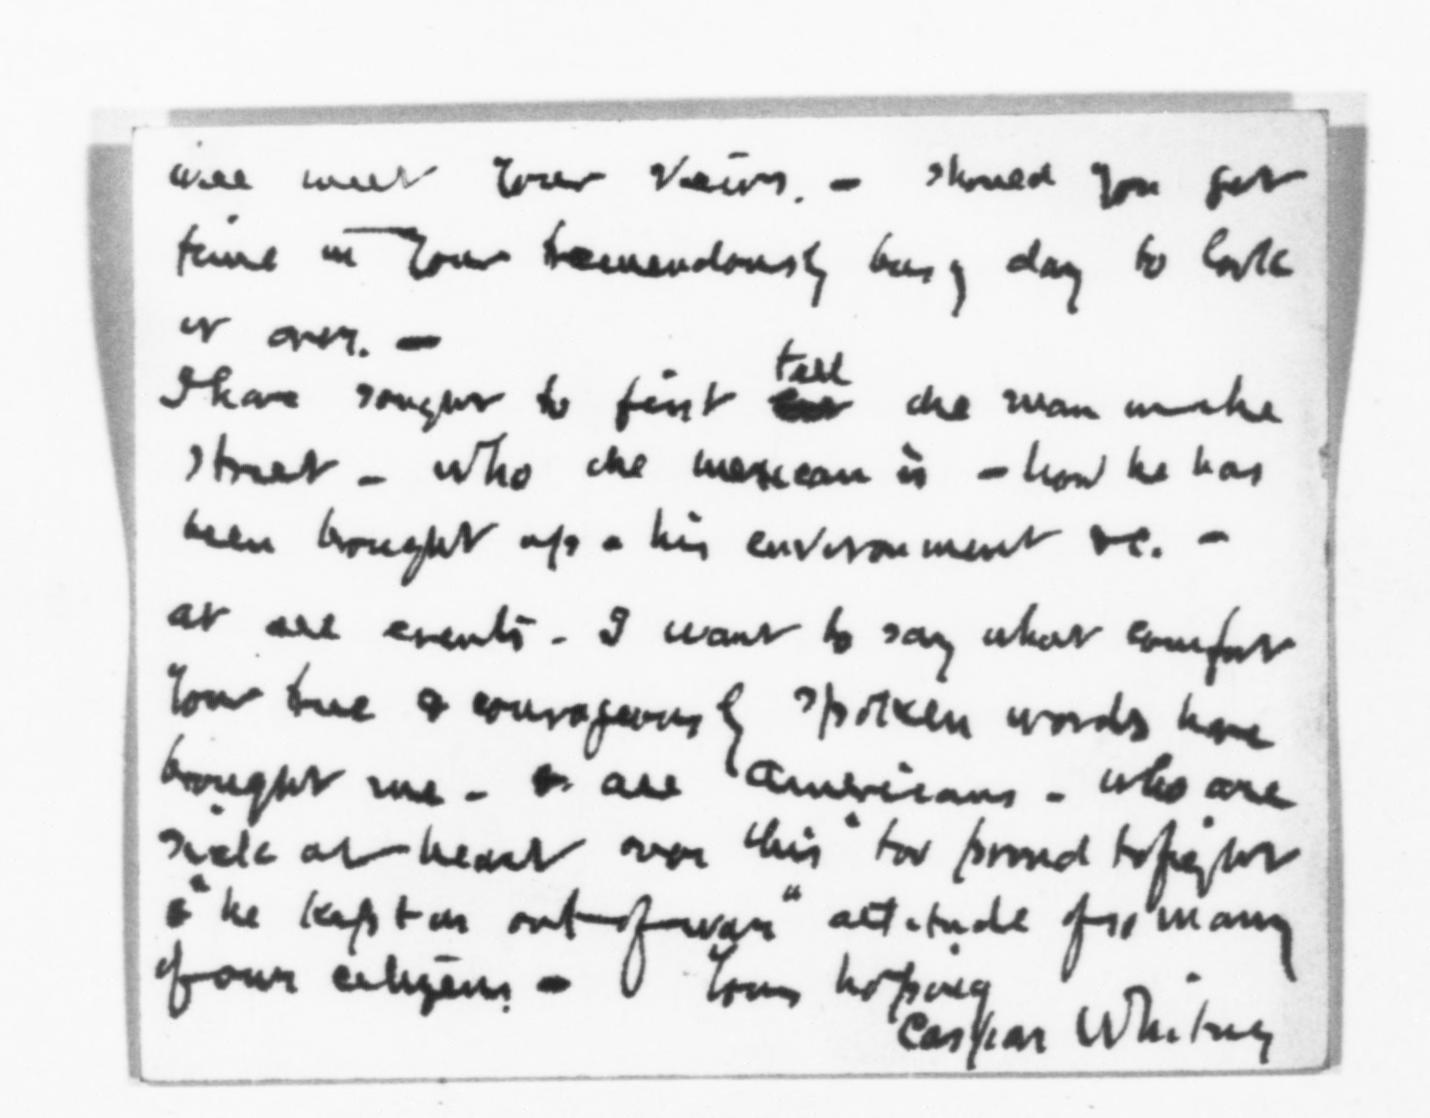 will meet your views. – should you get
time in your tremendously busy day to look
it over. –
I have sought to first tell the man in the
street – who the mexican is – how he has
been brought up – his environment &c. –
at all events – I want to say what comfort
your true & courageously spoken words have
brought me – & all Americans – who are
sick at heart over this "too proud to fight
& "he kept us out of war" attitude of so many
of our citizens – Yours hoping
Caspar Whitney